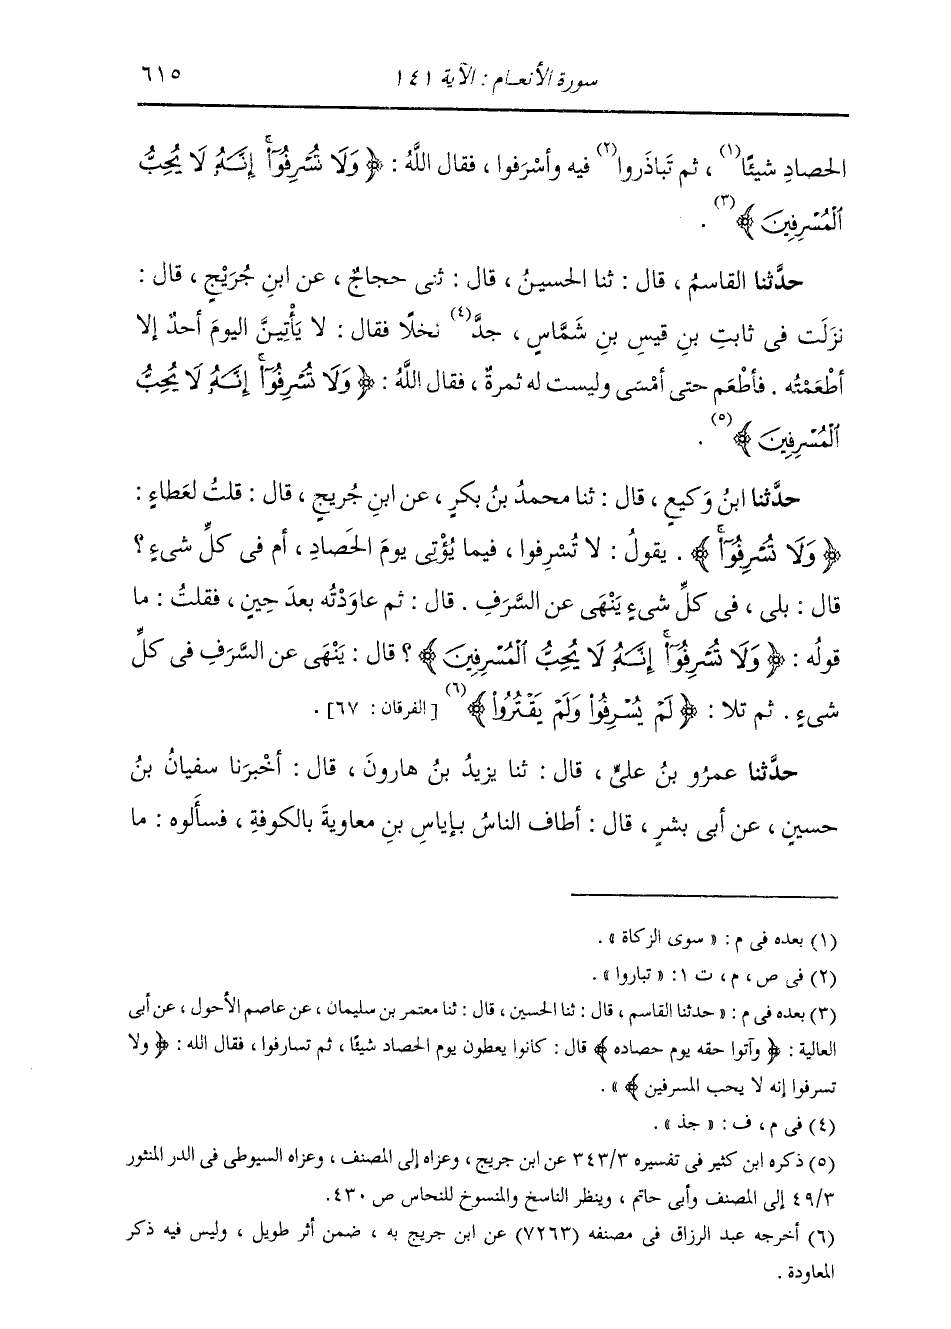 سورة الأنعام : الآية ١٤١ ٦١٥
الحصادِ شيئًا(١) ، ثم تَباذَروا(٢) فيه وأسْرَفوا ، فقال اللَّهُ : ﴿ وَلَا تُسْرِفُوٓاْ إِنَّهُۥ لَا يُحِبُّ
ٱلْمُسْرِفِينَ ﴾(٣) .
حدَّثنا القاسمُ ، قال : ثنا الحسينُ ، قال : ثنى حجاجٌ ، عن ابنِ جُرَيْجٍ ، قال :
نزَلَت فى ثابتِ بنِ قيسِ بنِ شَمَّاسٍ ، جدَّ(٤) نخلًا فقال : لا يَأْتِينَّ اليومَ أحدٌ إلا
أطْعَمْتُه . فأطْعَم حتى أمْسَى وليست له ثمرةٌ ، فقال اللَّهُ : ﴿ وَلَا تُسْرِفُوٓاْ إِنَّهُۥ لَا يُحِبُّ
ٱلْمُسْرِفِينَ ﴾(٥) .
حدَّثنا ابنُ وَكيعٍ ، قال : ثنا محمدُ بنُ بكرٍ ، عن ابنِ جُريجٍ ، قال : قلتُ لعَطاءٍ :
﴿ وَلَا تُسْرِفُوٓاْ ﴾ . يقولُ : لا تُسْرِفوا ، فيما يُؤْتِى يومَ الحَصادِ ، أم فى كلِّ شىءٍ ؟
قال : بلى ، فى كلِّ شىءٍ يَنْهَى عن السَّرَفِ . قال : ثم عاوَدْتُه بعدَ حِينٍ ، فقلتُ : ما
قولُه : ﴿ وَلَا تُسْرِفُوٓاْ إِنَّهُۥ لَا يُحِبُّ ٱلْمُسْرِفِينَ ﴾ ؟ قال : يَنْهَى عن السَّرَفِ فى كلِّ
شىءٍ . ثم تلا : ﴿ لَمْ يُسْرِفُواْ وَلَمْ يَقْتُرُواْ ﴾(٦) [ الفرقان : ٦٧] .
حدَّثنا عمرُو بنُ علىٍّ ، قال : ثنا يزيدُ بنُ هارونَ ، قال : أخْبرَنا سفيانُ بنُ
حسينٍ ، عن أبى بشرٍ ، قال : أطاف الناسُ بإياسِ بنِ معاويةَ بالكوفةِ ، فسأَلوه : ما
(١) بعده فى م : « سوى الزكاة » .
(٢) فى ص ، م ، ت ١: « تباروا » .
(٣) بعده فى م : « حدثنا القاسم ، قال : ثنا الحسين ، قال : ثنا معتمر بن سليمان ، عن عاصم الأحول ، عن أبى
العالية : ﴿ وآتوا حقه يوم حصاده ﴾ قال : كانوا يعطون يوم الحصاد شيئًا ، ثم تسارفوا ، فقال الله : ﴿ ولا
تسرفوا إنه لا يحب المسرفين ﴾ » .
(٤) فى م ، ف : « جذ » .
(٥) ذكره ابن كثير فى تفسيره ٣٤٣/٣ عن ابن جريج ، وعزاه إلى المصنف ، وعزاه السيوطى فى الدر المنثور
٤٩/٣ إلى المصنف وأبى حاتم ، وينظر الناسخ والمنسوخ للنحاس ص ٤٣٠.
(٦) أخرجه عبد الرزاق فى مصنفه (٧٢٦٣) عن ابن جريج به ، ضمن أثر طويل ، وليس فيه ذكر
المعاودة .